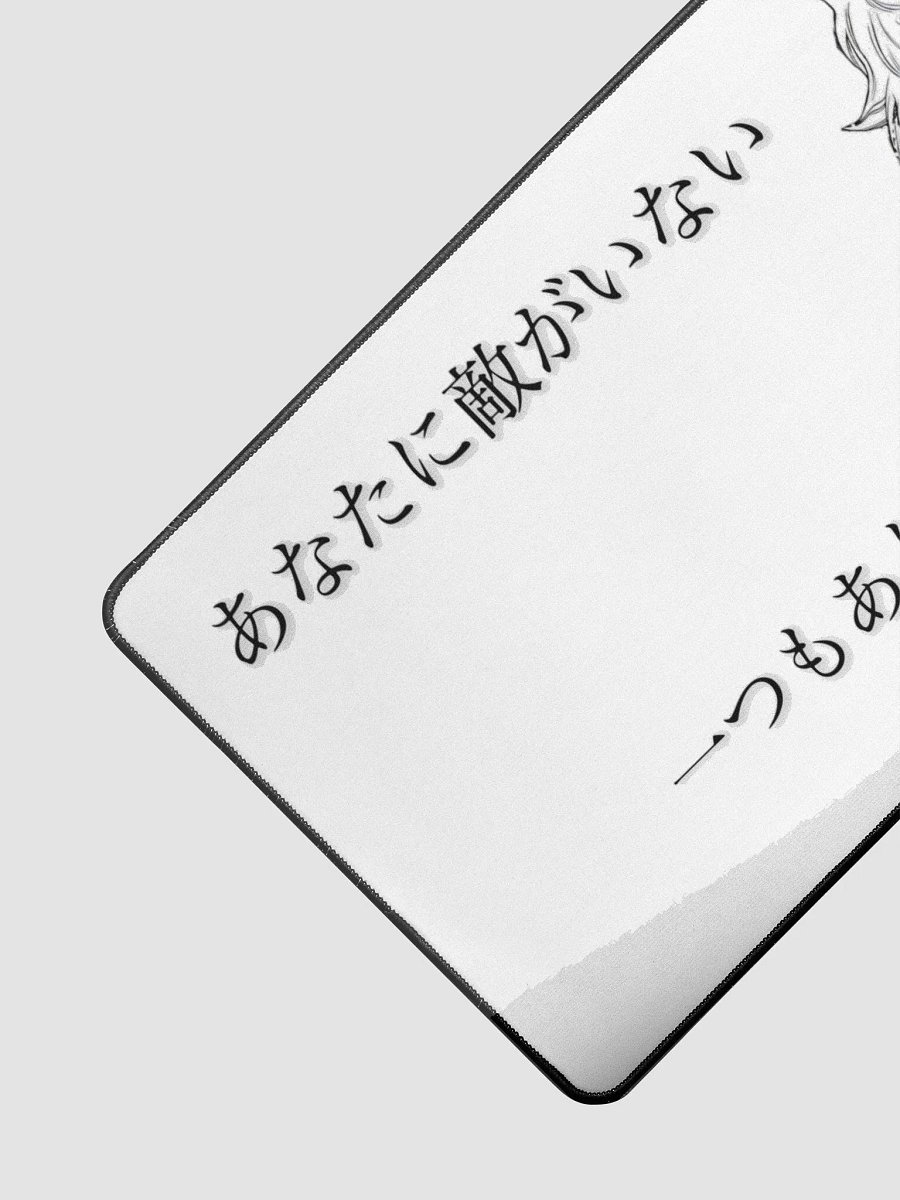 あなたに敵がいない
一つもあ